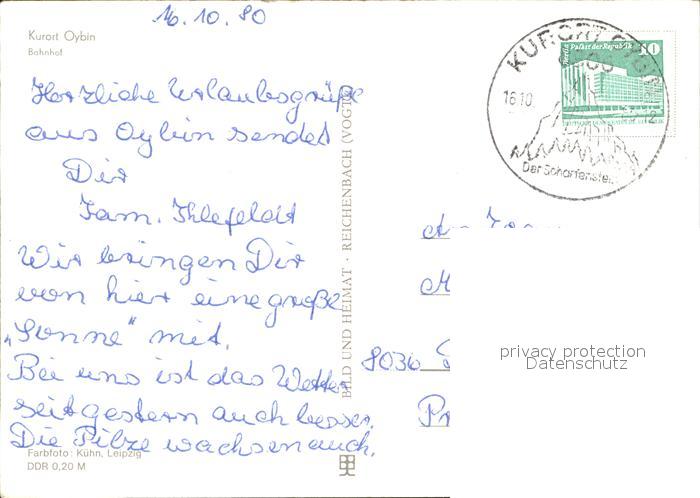 16.10.80
Kurort Oybin
Bahnhof
Herzliche Urlaubsgrüße
aus Oybin sendet
Dir
Fam. Ihlefeldt
Wir bringen Dir
von hier eine große
„Sonne" mit.
Bei uns ist das Wetter
seit gestern auch besser.
Die Pilze wachsen auch.
Farbfoto: Kühn, Leipzig
DDR 0,20 M
BILD UND HEIMAT · REICHENBACH (VOGTL)
KURORT OYBIN
16.10.
12
Der Scharfenstein
Berlin, Palast der Republik
10
8036
privacy protection
Datenschutz